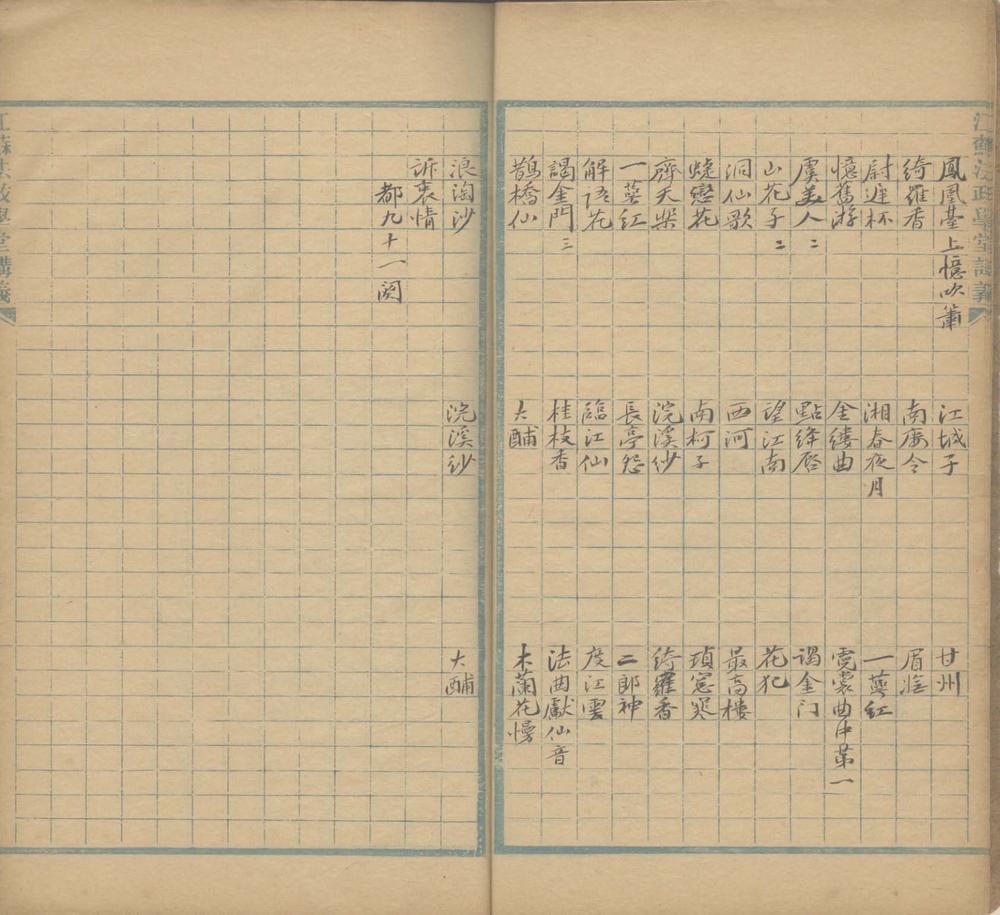 江蘇法政學堂講義
鳳凰臺上憶吹簫 江城子 甘州
綺羅香 南康令 眉嫵
尉遲杯 湘春夜月 一萼紅
憶舊游 金縷曲 霓裳曲中第一
虞美人二 點絳唇 謁金门
山花子二 望江南 花犯
洞仙歌 西河 最高樓
蜨戀花 南柯子 瑣窓寒
齊天樂 浣溪紗 綺羅香
一萼紅 長亭怨 二郎神
解语花 臨江仙 度江雲
謁金門三 桂枝香 法曲獻仙音
鵲橋仙 大酺 木蘭花慢
浪淘沙 浣溪紗 大酺
訴衷情
都九十一阕
江蘇法政學堂講義